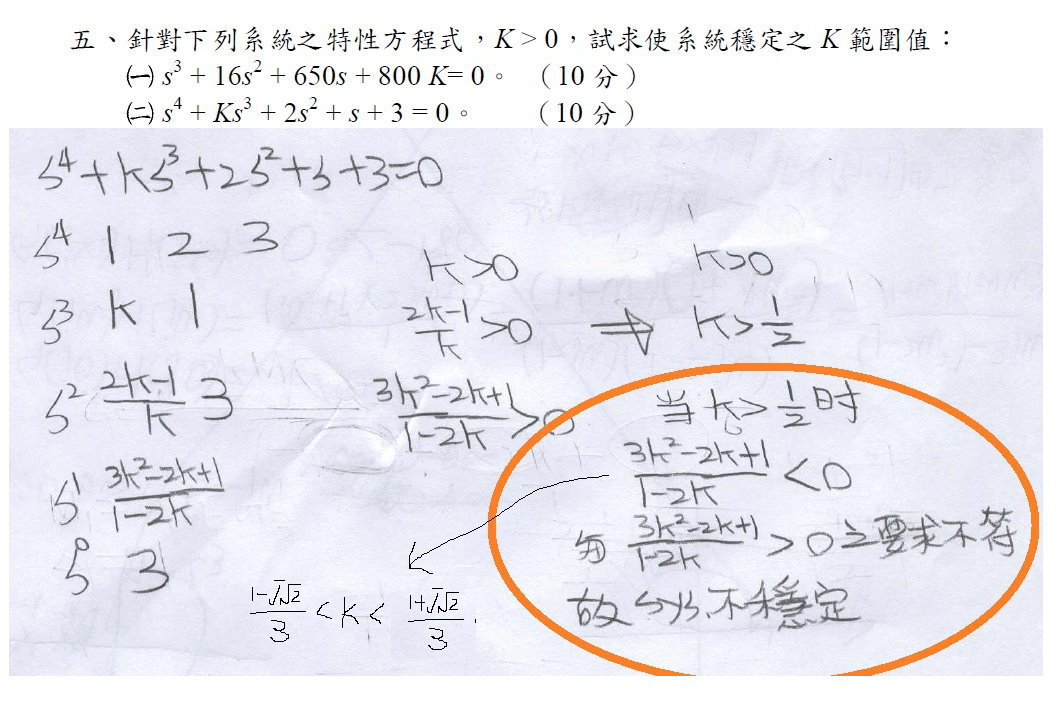 五、針對下列系統之特性方程式，K > 0，試求使系統穩定之 K 範圍值：
㈠ s³ + 16s² + 650s + 800 K= 0。 （10 分）
㈡ s⁴ + Ks³ + 2s² + s + 3 = 0。 （10 分）
s⁴+ks³+2s²+s+3=0
s⁴ 1 2 3
s³ k 1
s² (2k-1)/k 3
s¹ (3k²-2k+1)/(1-2k)
s⁰ 3
k>0
(2k-1)/k >0
(3k²-2k+1)/(1-2k) >0
⇒
k>0
k>1/2
当 k>1/2 时
(3k²-2k+1)/(1-2k) <0
与 (3k²-2k+1)/(1-2k) >0之要求不符
故sys.不穩定
(1-j√2)/3 <k< (1+j√2)/3.